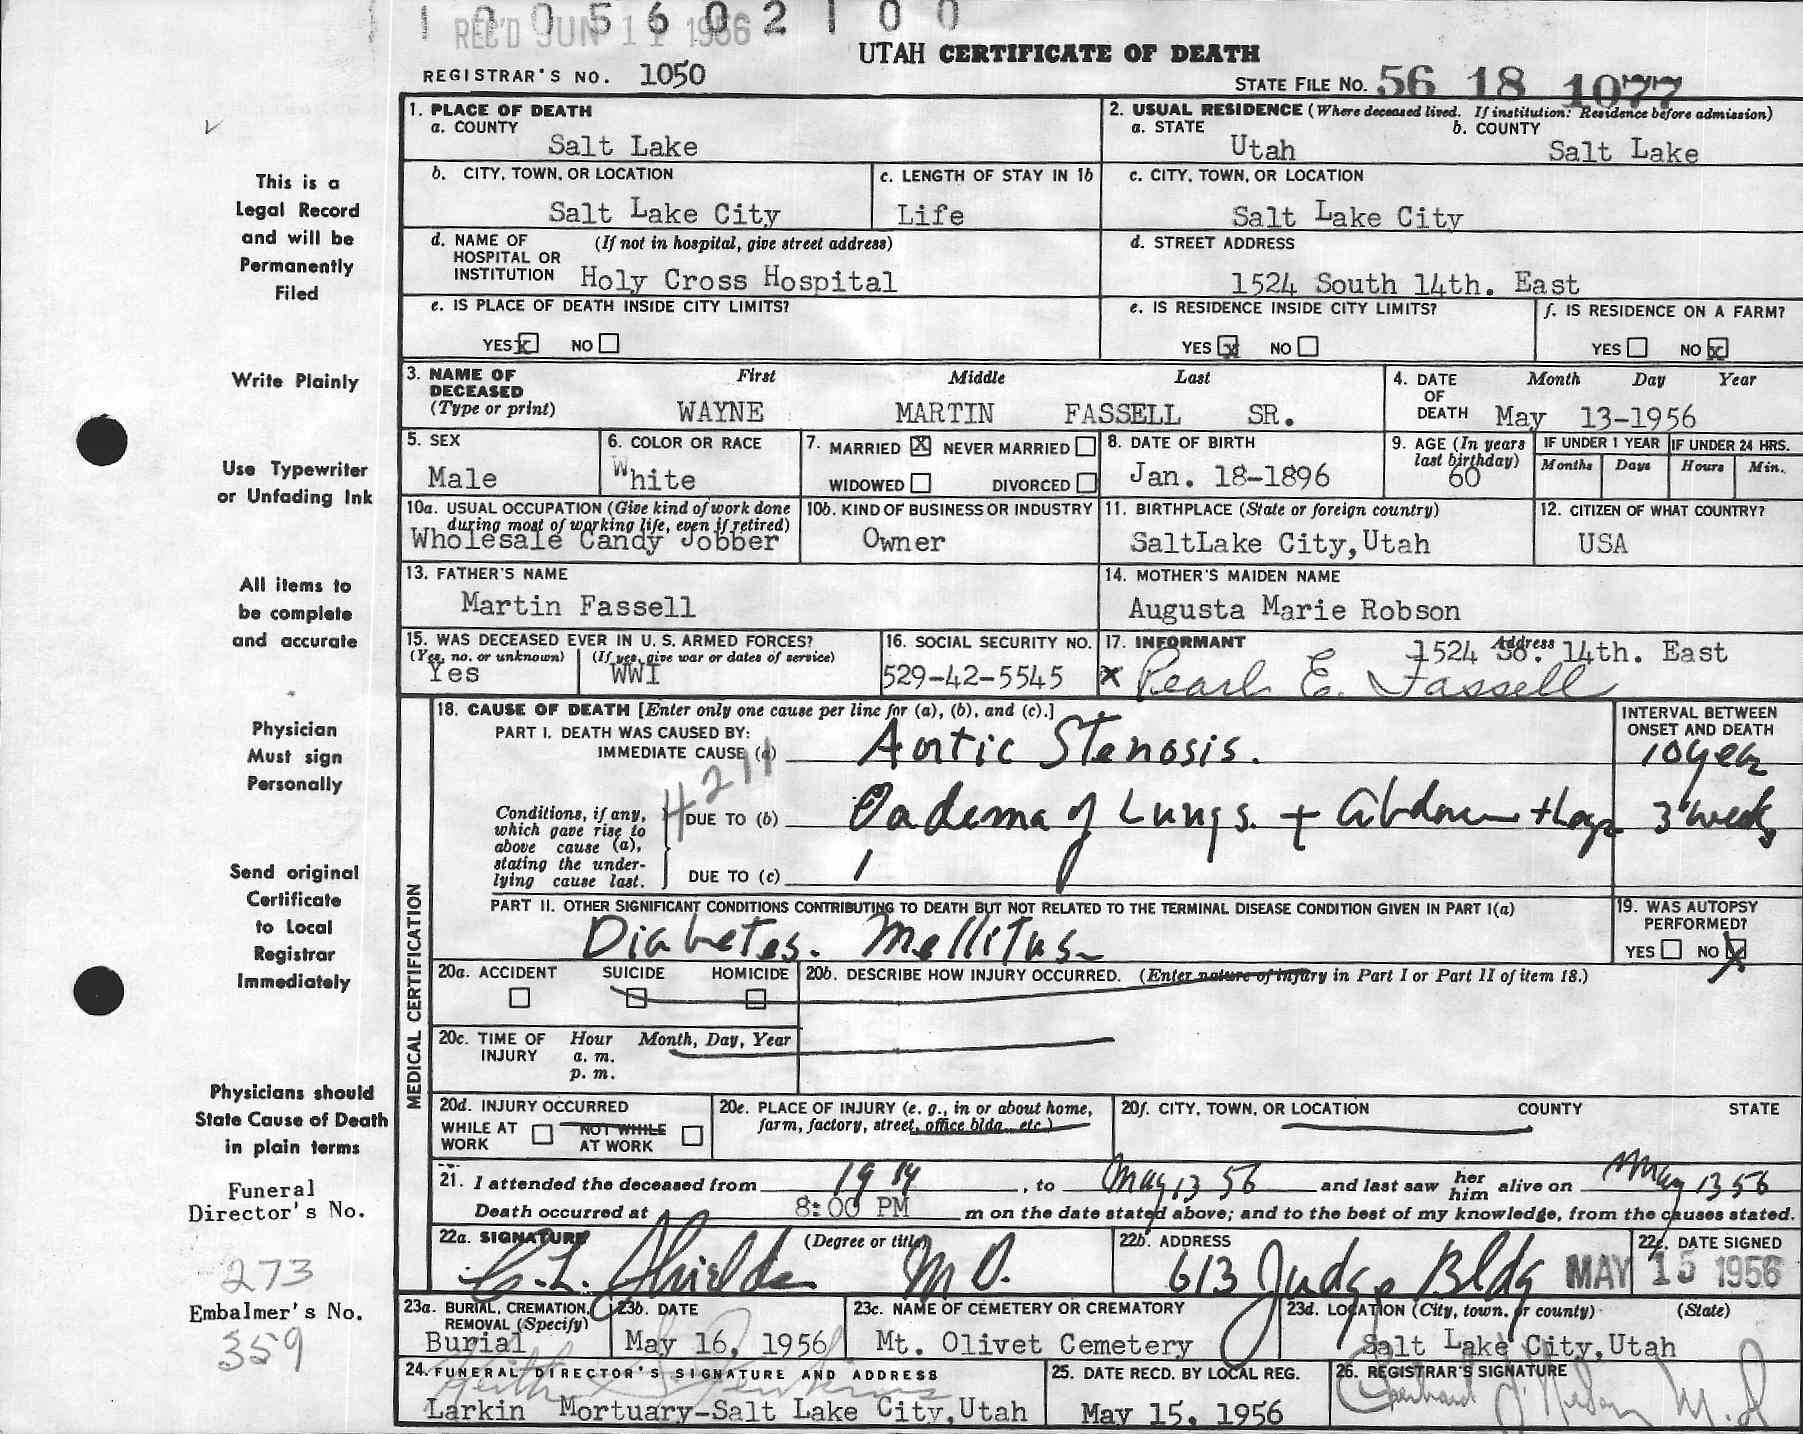 1 0 0 5 6 0 2 1 0 0
REC'D JUN 11 1956
UTAH CERTIFICATE OF DEATH
REGISTRAR'S NO. 1050
STATE FILE NO. 56 18 1077
1. PLACE OF DEATH
a. COUNTY
Salt Lake
2. USUAL RESIDENCE (Where deceased lived. If institution: Residence before admission)
a. STATE b. COUNTY
Utah Salt Lake
b. CITY, TOWN, OR LOCATION
Salt Lake City
c. LENGTH OF STAY IN 1b
Life
c. CITY, TOWN, OR LOCATION
Salt Lake City
d. NAME OF (If not in hospital, give street address)
HOSPITAL OR
INSTITUTION Holy Cross Hospital
d. STREET ADDRESS
1524 South 14th. East
e. IS PLACE OF DEATH INSIDE CITY LIMITS?
YES X NO
e. IS RESIDENCE INSIDE CITY LIMITS?
YES X NO
f. IS RESIDENCE ON A FARM?
YES NO X
3. NAME OF First Middle Last
DECEASED
(Type or print) WAYNE MARTIN FASSELL SR.
4. DATE Month Day Year
OF
DEATH May 13-1956
5. SEX
Male
6. COLOR OR RACE
White
7. MARRIED X NEVER MARRIED
WIDOWED DIVORCED
8. DATE OF BIRTH
Jan. 18-1896
9. AGE (In years
last birthday)
60
IF UNDER 1 YEAR IF UNDER 24 HRS.
Months Days Hours Min.
10a. USUAL OCCUPATION (Give kind of work done
during most of working life, even if retired)
Wholesale Candy Jobber
10b. KIND OF BUSINESS OR INDUSTRY
Owner
11. BIRTHPLACE (State or foreign country)
SaltLake City,Utah
12. CITIZEN OF WHAT COUNTRY?
USA
13. FATHER'S NAME
Martin Fassell
14. MOTHER'S MAIDEN NAME
Augusta Marie Robson
15. WAS DECEASED EVER IN U. S. ARMED FORCES?
(Yes, no. or unknown) (If yes, give war or dates of service)
Yes WWI
16. SOCIAL SECURITY NO.
529-42-5545
17. INFORMANT Address
1524 So. 14th. East
x Pearl E. Fassell
MEDICAL CERTIFICATION
18. CAUSE OF DEATH [Enter only one cause per line for (a), (b), and (c).]
INTERVAL BETWEEN
ONSET AND DEATH
PART I. DEATH WAS CAUSED BY:
IMMEDIATE CAUSE (a) Aortic Stenosis. 10 year
4211
Conditions, if any,
which gave rise to
above cause (a),
stating the under-
lying cause last.
DUE TO (b) Oadema of Lungs. + Abdomen + Legs 3 weeks
DUE TO (c)
PART II. OTHER SIGNIFICANT CONDITIONS CONTRIBUTING TO DEATH BUT NOT RELATED TO THE TERMINAL DISEASE CONDITION GIVEN IN PART I(a)
Diabetes. Mellitus
19. WAS AUTOPSY
PERFORMED?
YES NO X
20a. ACCIDENT SUICIDE HOMICIDE
20b. DESCRIBE HOW INJURY OCCURRED. (Enter nature of injury in Part I or Part II of item 18.)
20c. TIME OF Hour Month, Day, Year
INJURY a. m.
p. m.
20d. INJURY OCCURRED
WHILE AT NOT WHILE
WORK AT WORK
20e. PLACE OF INJURY (e. g., in or about home,
farm, factory, street, office bldg., etc.)
20f. CITY, TOWN, OR LOCATION COUNTY STATE
21. I attended the deceased from 19 , to May 13 56 and last saw her him alive on May 13 56
Death occurred at 8:00 PM m on the date stated above; and to the best of my knowledge, from the causes stated.
22a. SIGNATURE (Degree or title)
C. L. Shields M D.
22b. ADDRESS
613 Judge Bldg
22c. DATE SIGNED
MAY 15 1956
23a. BURIAL, CREMATION,
REMOVAL (Specify)
Burial
23b. DATE
May 16, 1956
23c. NAME OF CEMETERY OR CREMATORY
Mt. Olivet Cemetery
23d. LOCATION (City, town. or county) (State)
Salt Lake City,Utah
24. FUNERAL DIRECTOR'S SIGNATURE AND ADDRESS
Larkin Mortuary-Salt Lake City,Utah
25. DATE RECD. BY LOCAL REG.
May 15, 1956
26. REGISTRAR'S SIGNATURE
M. D
This is a
Legal Record
and will be
Permanently
Filed
Write Plainly
Use Typewriter
or Unfading Ink
All items to
be complete
and accurate
Physician
Must sign
Personally
Send original
Certificate
to Local
Registrar
Immediately
Physicians should
State Cause of Death
in plain terms
Funeral
Director's No.
273
Embalmer's No.
359